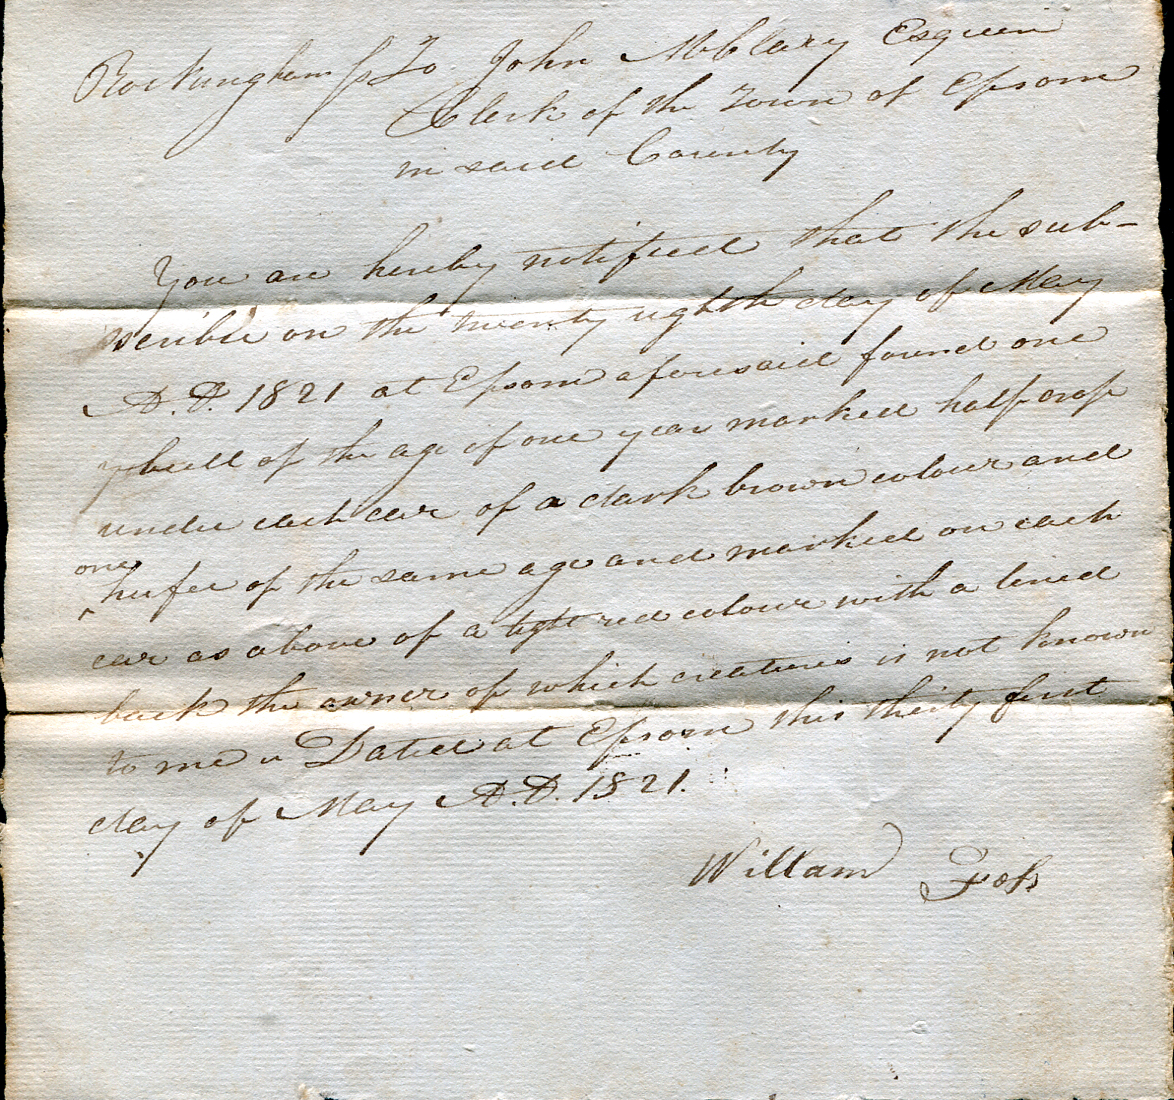 Rockingham ss To John McClary Esquire
Clerk of the Town of Epsom
in said County
You are hereby notified that the sub-
scriber on the twenty eighth day of May
A.D. 1821 at Epsom aforesaid found one
bull of the age of one year marked half crop
under each ear of a dark brown colour and
one
^ heifer of the same age and marked on each
ear as above of a light red colour with a lined
back the owner of which creatures is not known
to me Dated at Epsom this thirty first
day of May A.D. 1821.
Willam Foss